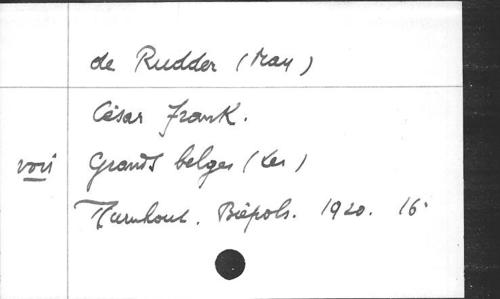 de Rudder (May)
César Frank.
voir Grands belges (Les)
Turnhout. Brépols. 1920. 16°